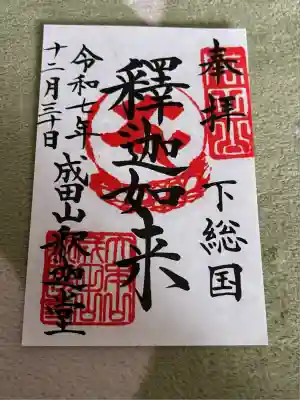 奉拝
下総国
釋迦如来
令和七年
十二月三十日
成田山 釈迦堂